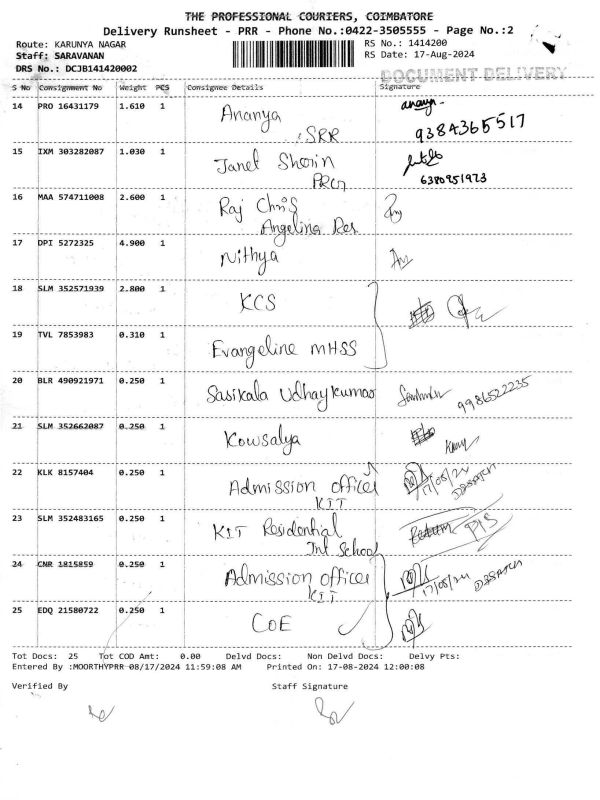 THE PROFESSIONAL COURIERS, COIMBATORE
Delivery Runsheet - PRR - Phone No.:0422-3505555 - Page No.:2
Route: KARUNYA NAGAR
RS No.: 1414200
Staff: SARAVANAN
RS Date: 17-Aug-2024
DRS No.: DCJB141420002
DOCUMENT DELIVERY
S No Consignment No Weight PCS Consignee Details Signature
14 PRO 16431179 1.610 1 Ananya
SRR 9384365517
15 IXM 303282087 1.030 1 Janet Sherin
6380951973
16 MAA 574711008 2.600 1 Raj Chris
Angelina Res
17 DPI 5272325 4.900 1 Nithya
18 SLM 352571939 2.800 1 KCS
19 TVL 7853983 0.310 1 Evangeline MHSS
20 BLR 490921971 0.250 1 Sasikala Udhaykumar 9986522235
21 SLM 352662087 0.250 1 Kowsalya
22 KLK 8157404 0.250 1 Admission officer 17/08/24
KIT
23 SLM 352483165 0.250 1 KIT Residential
Int School
24 CNR 1815859 0.250 1 Admission officer 17/08/24
KIT
25 EDQ 21580722 0.250 1 COE
Tot Docs: 25 Tot COD Amt: 0.00 Delvd Docs: Non Delvd Docs: Delvy Pts:
Entered By :MOORTHYPRR 08/17/2024 11:59:08 AM Printed On: 17-08-2024 12:00:08
Verified By Staff Signature